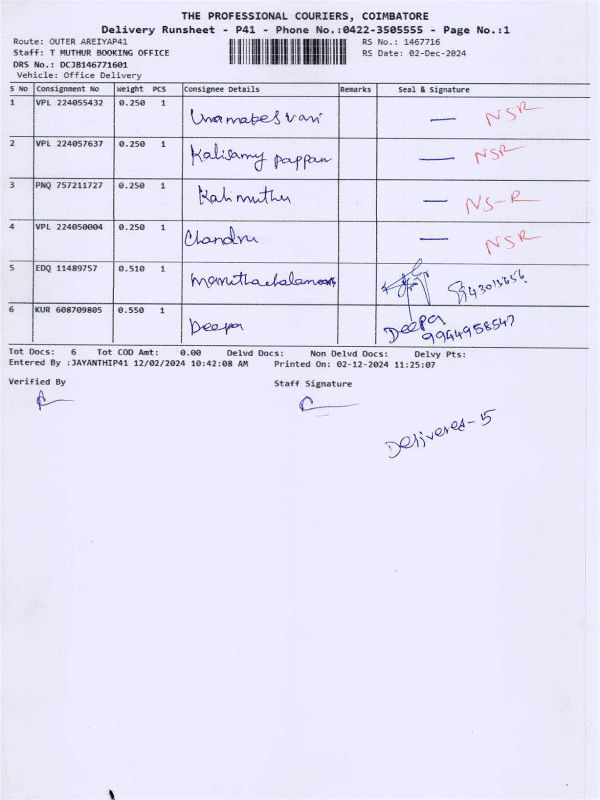 THE PROFESSIONAL COURIERS, COIMBATORE
Delivery Runsheet - P41 - Phone No.:0422-3505555 - Page No.:1
Route: OUTER AREIYAP41 RS No.: 1467716
Staff: T MUTHUR BOOKING OFFICE RS Date: 02-Dec-2024
DRS No.: DCJB146771601
Vehicle: Office Delivery
S No Consignment No Weight PCS Consignee Details Remarks Seal & Signature
1 VPL 224055432 0.250 1 Umamakesvari — NSR
2 VPL 224057637 0.250 1 Kalisamy pappan — NSR
3 PNQ 757211727 0.250 1 Kalimuthu — NS-R
4 VPL 224050004 0.250 1 Chandru — NSR
5 EDQ 11489757 0.510 1
6 KUR 608709805 0.550 1 Deepa Deepa 9944958547
Tot Docs: 6 Tot COD Amt: 0.00 Delvd Docs: Non Delvd Docs: Delvy Pts:
Entered By :JAYANTHIP41 12/02/2024 10:42:08 AM Printed On: 02-12-2024 11:25:07
Verified By Staff Signature
Delivered-5